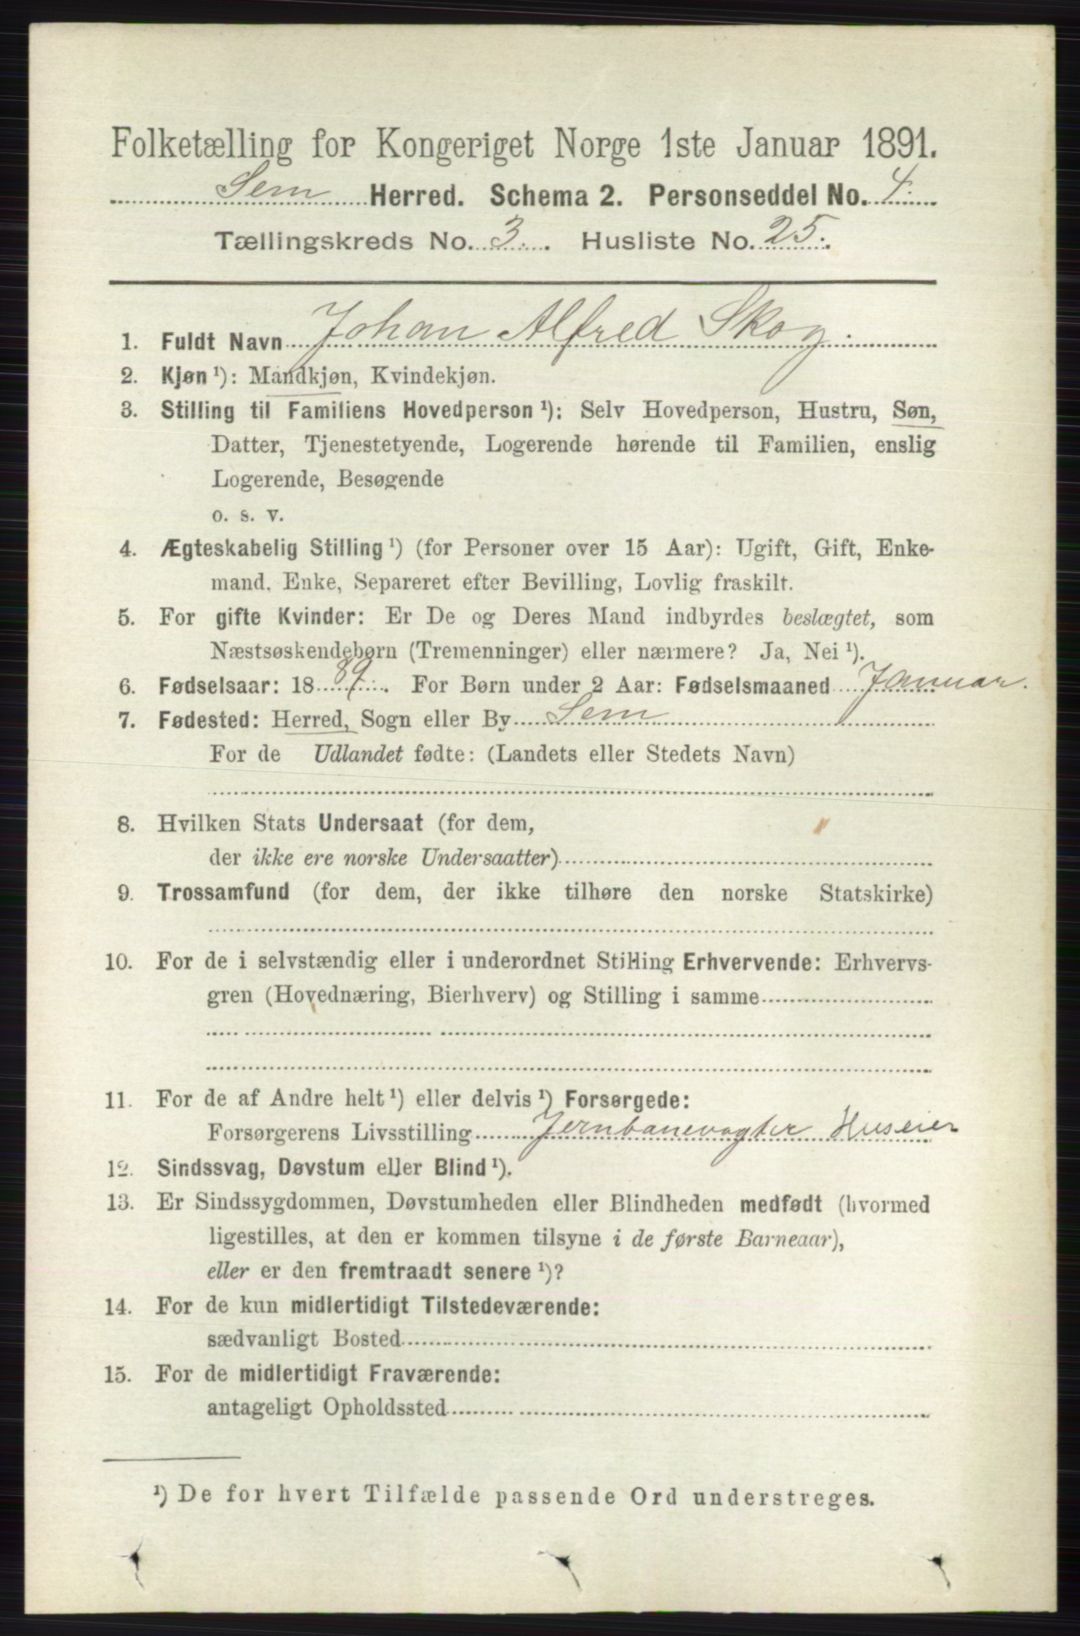 Folketælling for Kongeriget Norge 1ste Januar 1891.
Sem Herred. Schema 2. Personseddel No. 4.
Tællingskreds No. 3. Husliste No. 25.
1. Fuldt Navn Johan Alfred Skog.
2. Kjøn ¹): Mandkjøn, Kvindekjøn.
3. Stilling til Familiens Hovedperson ¹): Selv Hovedperson, Hustru, Søn,
Datter, Tjenestetyende, Logerende hørende til Familien, enslig
Logerende, Besøgende
o. s. v.
4. Ægteskabelig Stilling ¹) (for Personer over 15 Aar): Ugift, Gift, Enke-
mand, Enke, Separeret efter Bevilling, Lovlig fraskilt.
5. For gifte Kvinder: Er De og Deres Mand indbyrdes beslægtet, som
Næstsøskendebørn (Tremenninger) eller nærmere? Ja, Nei ¹).
6. Fødselsaar: 1889. For Børn under 2 Aar: Fødselsmaaned Januar.
7. Fødested: Herred, Sogn eller By Sem
For de Udlandet fødte: (Landets eller Stedets Navn)
8. Hvilken Stats Undersaat (for dem,
der ikke ere norske Undersaatter)
9. Trossamfund (for dem, der ikke tilhøre den norske Statskirke)
10. For de i selvstændig eller i underordnet Stilling Erhvervende: Erhvervs-
gren (Hovednæring, Bierhverv) og Stilling i samme
11. For de af Andre helt ¹) eller delvis ¹) Forsørgede:
Forsørgerens Livsstilling Jernbanevogter Huseier
12. Sindssvag, Døvstum eller Blind ¹).
13. Er Sindssygdommen, Døvstumheden eller Blindheden medfødt (hvormed
ligestilles, at den er kommen tilsyne i de første Barneaar),
eller er den fremtraadt senere ¹)?
14. For de kun midlertidigt Tilstedeværende:
sædvanligt Bosted
15. For de midlertidigt Fraværende:
antageligt Opholdssted
¹) De for hvert Tilfælde passende Ord understreges.